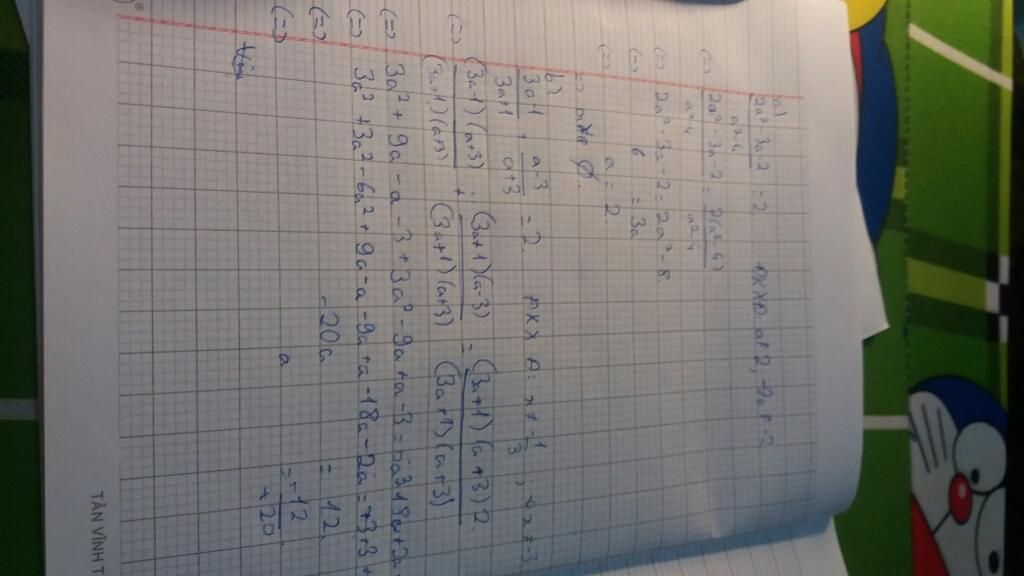 a)
2a² - 3a - 2 / a² - 4 = 2 ĐKXĐ: a ≠ 2, a ≠ -2
(=) 2a² - 3a - 2 / a² - 4 = 2(a² - 4) / a² - 4
(=) 2a² - 3a - 2 = 2a² - 8
(=) 6 = 3a
(=) a = 2
=) a ∅.
b)
3a-1 / 3a+1 + a-3 / a+3 = 2 ĐKXĐ: x ≠ -1/3 ; x ≠ -3
(=) (3a-1)(a+3) / (3a+1)(a+3) + (3a+1)(a-3) / (3a+1)(a+3) = (3a+1)(a+3)2 / (3a+1)(a+3)
(=) 3a² + 9a - a - 3 + 3a² - 9a + a - 3 = 6a² + 18a + 2a
(=) 3a² + 3a² - 6a² + 9a - a - 9a + a - 18a - 2a = +3+3+
(=) -20a = 12
(=) a = -12 / +20
Vậy
TÂN VĨNH T